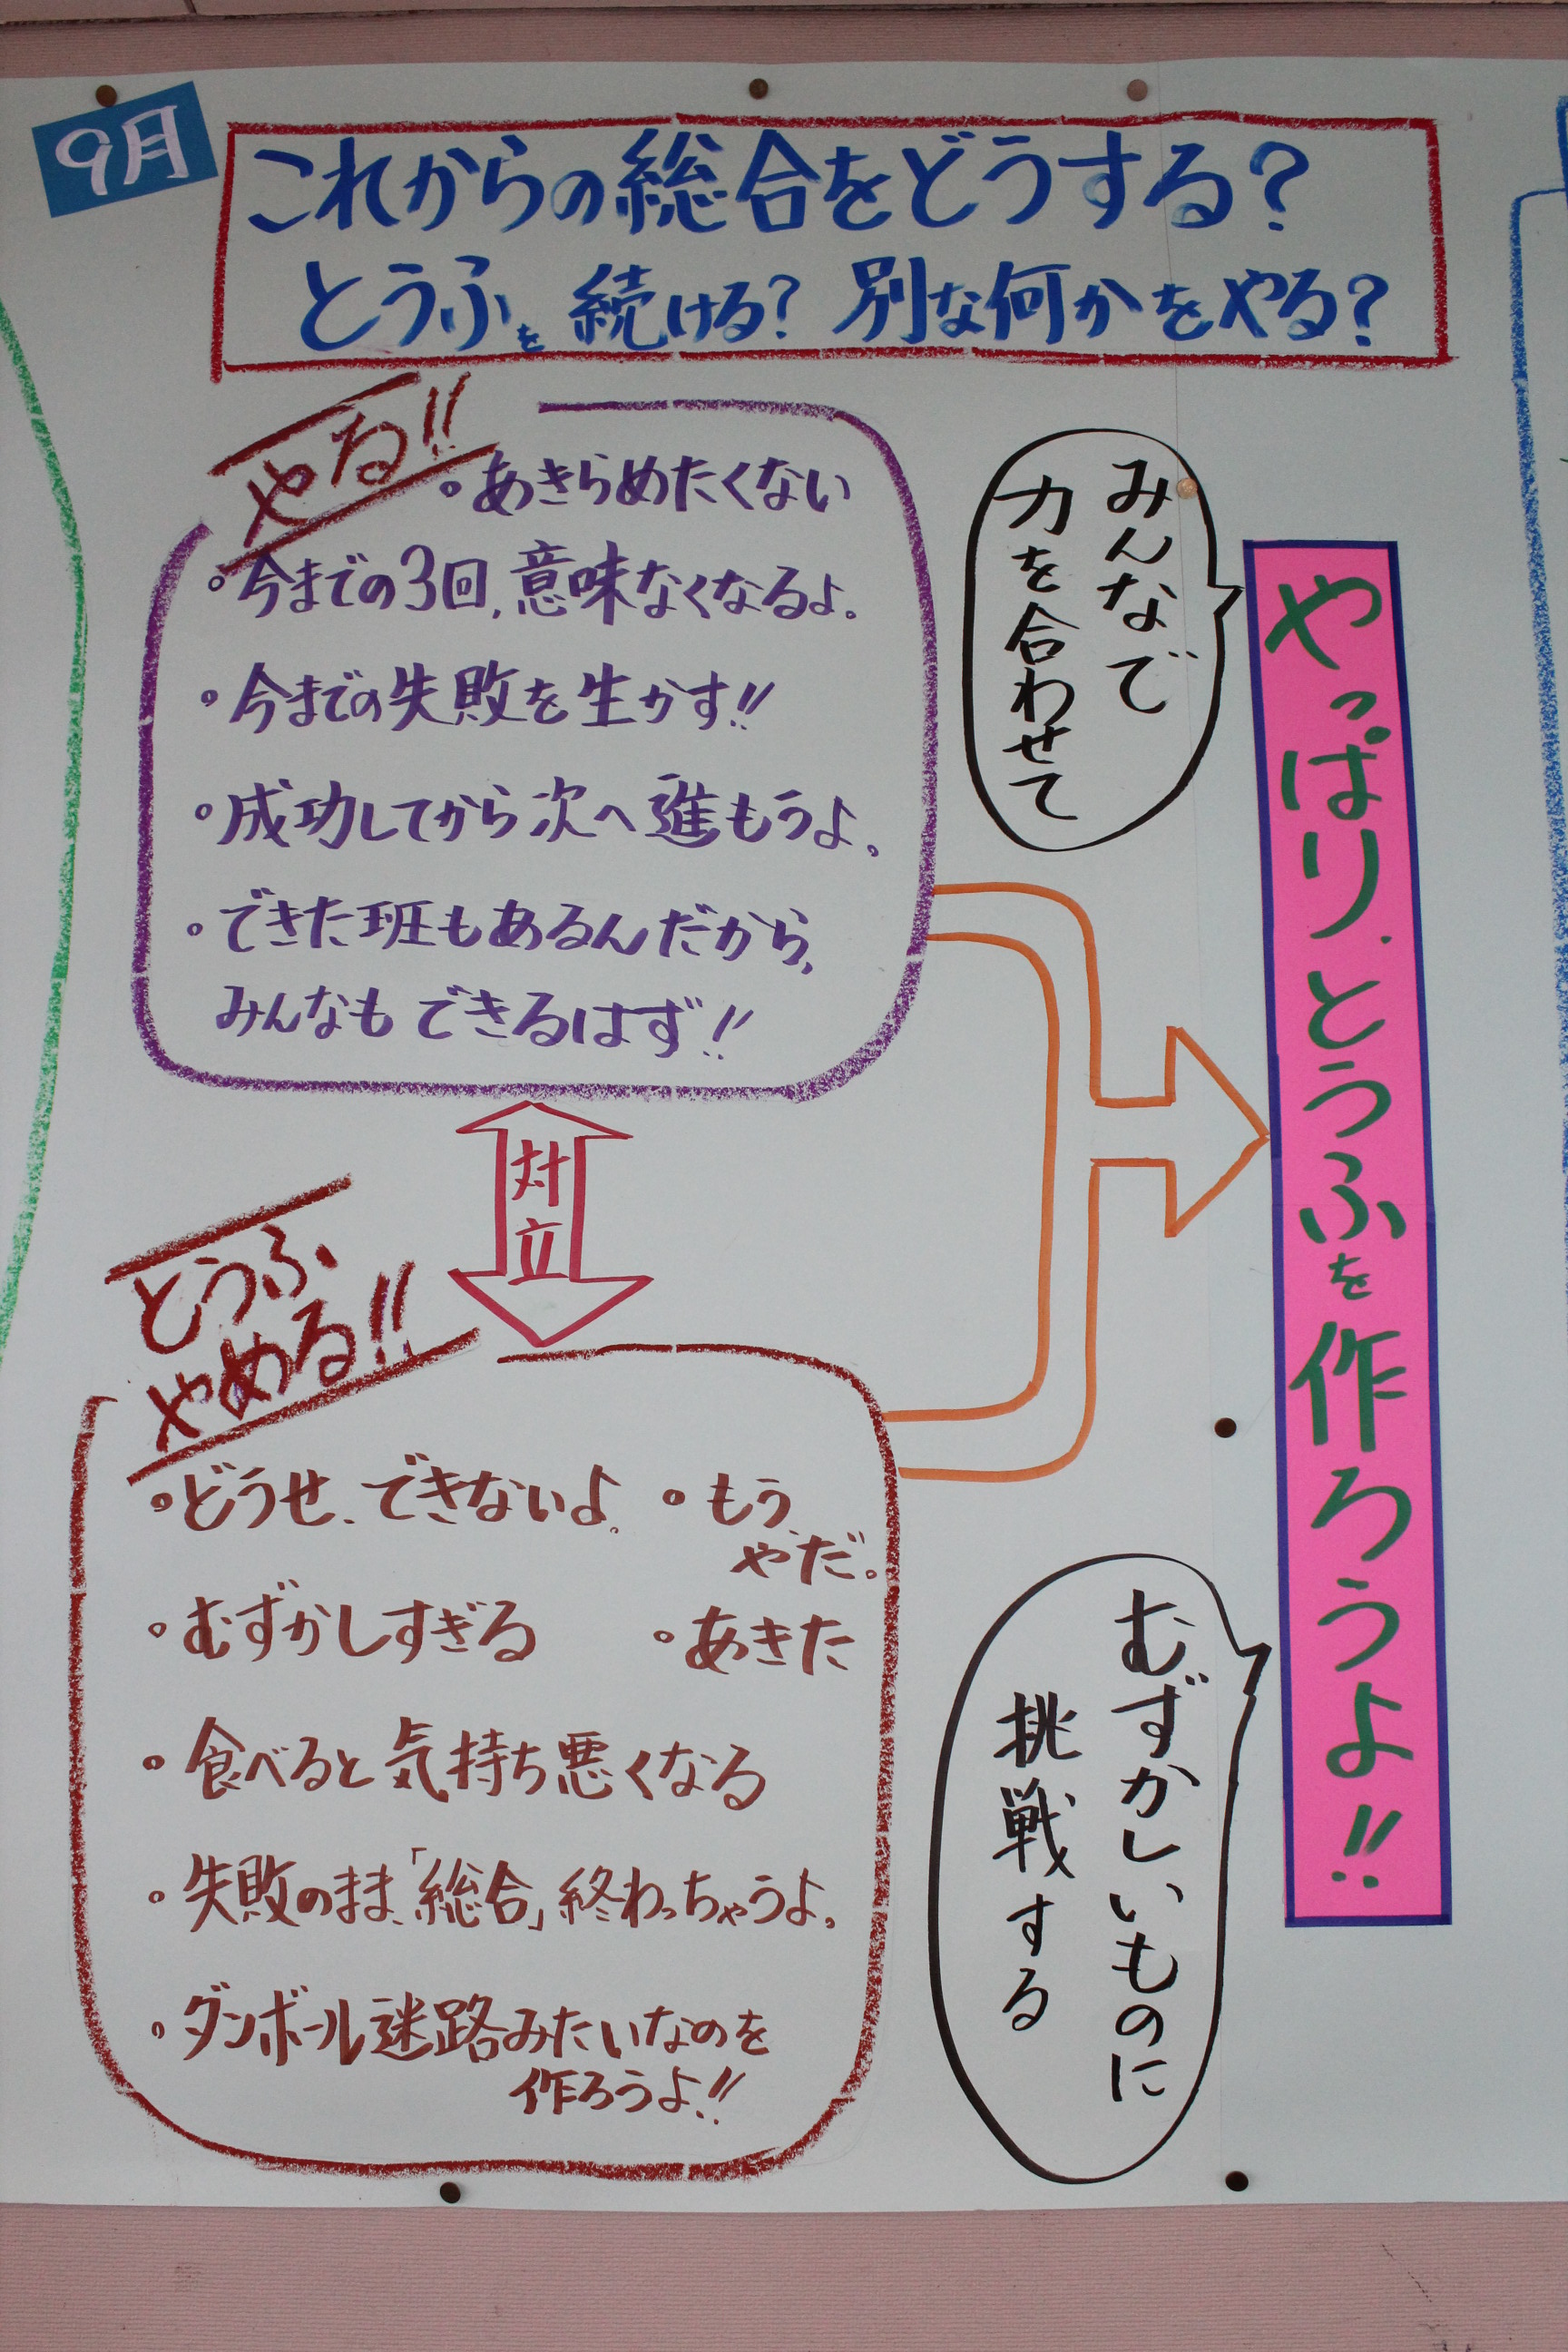 9月
これからの総合をどうする?
とうふを続ける? 別な何かをやる?
やる!!
・あきらめたくない
・今までの3回、意味なくなるよ。
・今までの失敗を生かす!!
・成功してから次へ進もうよ。
・できた班もあるんだから、
みんなもできるはず!!
対立
とうふ
やめる!!
・どうせ、できないよ。
・もう、
やだ。
・むずかしすぎる
・あきた
・食べると気持ち悪くなる
・失敗のまま、「総合」終わっちゃうよ。
・ダンボール迷路みたいなのを
作ろうよ!!
みんなで
力を合わせて
やっぱり、とうふを作ろうよ!!
むずかしいものに
挑戦する